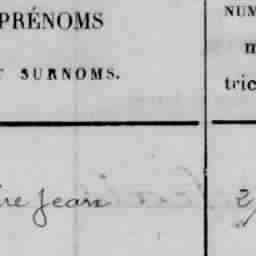 PRÉNOMS
SURNOMS.
NUM
m
tric
Jean
2